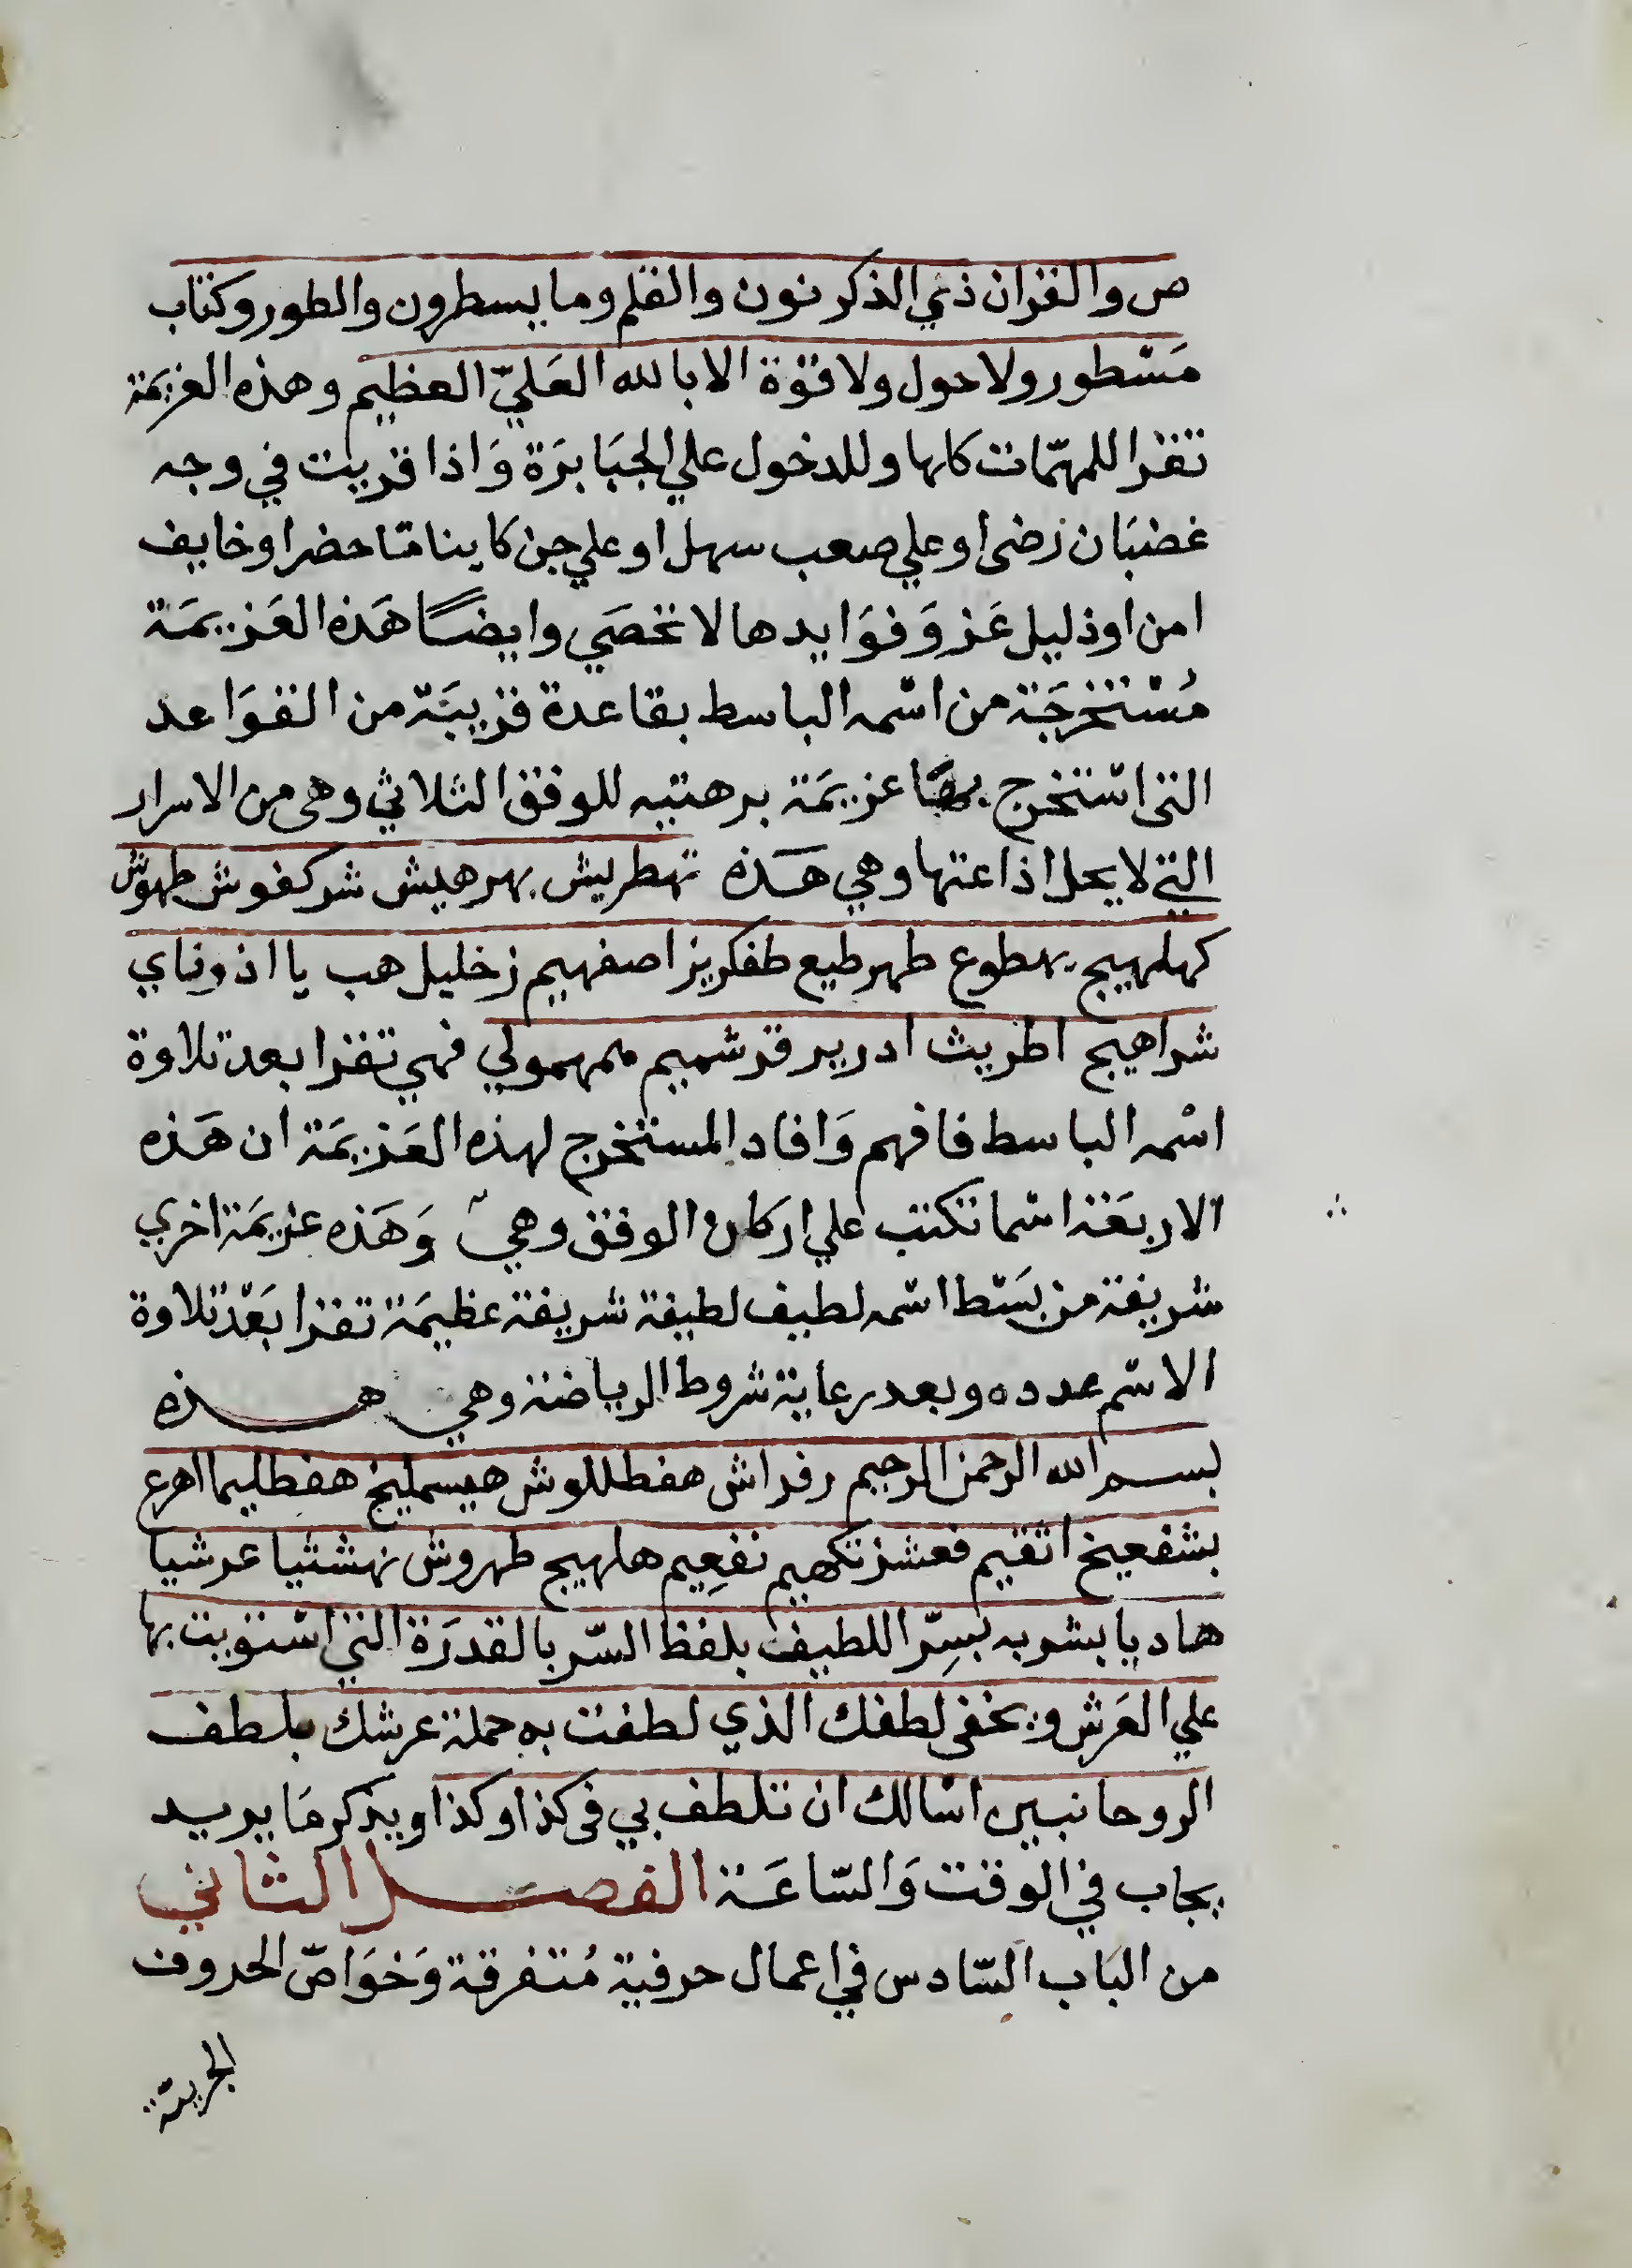 ص والقران ذي الذكر نون والقلم وما يسطرون والطور وكتاب
مَسْطور ولا حول ولا قوّة الا بالله العَليّ العظيم وهذه العزيمَة
تقرا للمهمّات كلها وللدخول علي الجبَابرَة وَاذا قريت في وجه
غضبَان رضى او علي صعب سهل او علي جن كاينا مّا حضر او خايف
امن او ذليل عَز وَفوَايدها لا تحصَي وايضًا هَذه العَزيمَة
مُسْتخرجَة من اسْمه الباسط بقاعدة قريبَة من القوَاعد
التى استخرج بهَا عزيمَة برهتيه للوفق الثلاثي وهى من الاسرار
التي لا يحل اذاعتها وهي هَذه تهطريش بهرهيش شركفوش طهوش
كهلهيج بهطوع طهرطيع طفكريز اصفهيم زخليل هب يا اذوناي
شراهيج اطريث ادرير قرشميم ملمهمولي فهي تقرا بعد تلاوة
اسْمه الباسط فافهم وَافاد المستخرج لهذه العَزيمَة ان هَذه
الاربعَة اسْما تكتب علي اركان الوفق وهي وَهَذه عزيمَة اخري
شريفة من بَسْط اسْمه لطيف لطيفة شريفة عظيمَة تقرا بَعْد تلاوة
الاسْم عدده وبعد رعاية شروط الرياضة وهي هذه
بسم الله الرحمن الرحيم رفراش هفطللوش هيسمليخ هفطليما اهرع
بشفعيخ اثقيم فعشز تكهيم نفعِيم هلهيج طهروش نهشثيا عرشيا
هاديا بشربه بَسِرّ اللطيف بلفظ السّر بالقدرَة التي اسْتويت بها
علي العَرش وبخفى لطفك الذي لطفت به حملة عرشك بلطف
الروحانيين اسْالك ان تلطف بي فى كذا وكذا ويذكر مَا يريد
يجاب في الوقت وَالسّاعَة الفصل الثاني
من البَاب السّادس في اعمال حرفية مُتفرقة وَخوَاصّ الحروف